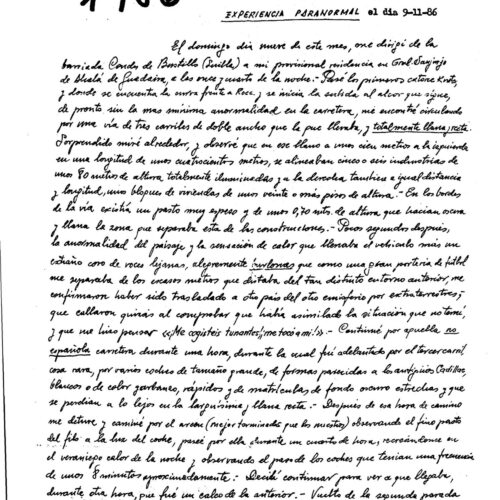 EXPERIENCIA PARANORMAL el dia 9-11-86
El domingo dia nueve de este mes, me dirigí de la
barriada Condes de Bustillo (Sevilla) a mi provisional residencia en Gral Sanjurjo
de Alcalá de Guadaira, a las once y cuarto de la noche.- Pasé los primeros catorce Kmts,
y donde se encuentra la curva frente a Roce, y se inicia la subida al alcor que sigue,
de pronto sin la mas mínima anormalidad en la carretera, me encontré circulando
por una vía de tres carriles de doble ancho que la que llevaba, y totalmente llana y recta.
Sorprendido miré alrededor, y observé que en ese llano a unos cien metros a la izquierda
en una longitud de unos cuatrocientos metros, se alineaban cinco o seis industrias de
unos 80 metros de altura totalmente iluminadas y a la derecha tambien a igual distancia
y longitud, unos bloques de viviendas de unos veinte o más pisos de altura.- En los bordes
de la vía existía un pasto muy espeso y de unos 0,70 mts. de altura que hacían oscura
y llana la zona que separaba esta de las construcciones.- Pocos segundos después,
la anormalidad del paisaje y la sensación de calor que llevaba el vehículo más un
extraño coro de voces lejanas, alegremente burlonas que como una gran portería de fútbol
me separaba de los escasos metros que distaba del tan distinto entorno anterior, me
confirmaron haber sido trasladado a otro pais del otro emisferio por extraterrestres; y
que callaron quizás al comprobar que había asimilado la situación que no temí,
y que me hizo pensar «¡Me cogisteis tunantes, me tocó a mí!».- Continué por aquella no
española carretera durante una hora, durante la cual fuí adelantado por el tercer carril
cosa rara, por varios coches de tamaño grande, de formas parecidas a los antigüos Cadillac,
blancos o de color garbanzo, rápidos y de matrículas de fondo oscuro estrechas y que
se perdían a lo lejos en la larguísima y llana recta.- Después de esa hora de camino
me detuve y caminé por el arcen (mejor terminados que los nuestros) observando el fino pasto
del filo a la luz del coche, paseé por ella durante un cuarto de hora, recreándome en
el veraniego calor de la noche y observando el paso de los coches que tenían una frecuencia
de unos 8 minutos aproximadamente.- Decidí continuar para ver a que llegaba,
durante otra hora, que fué un calco de la anterior.- Vuelto de la segunda parada